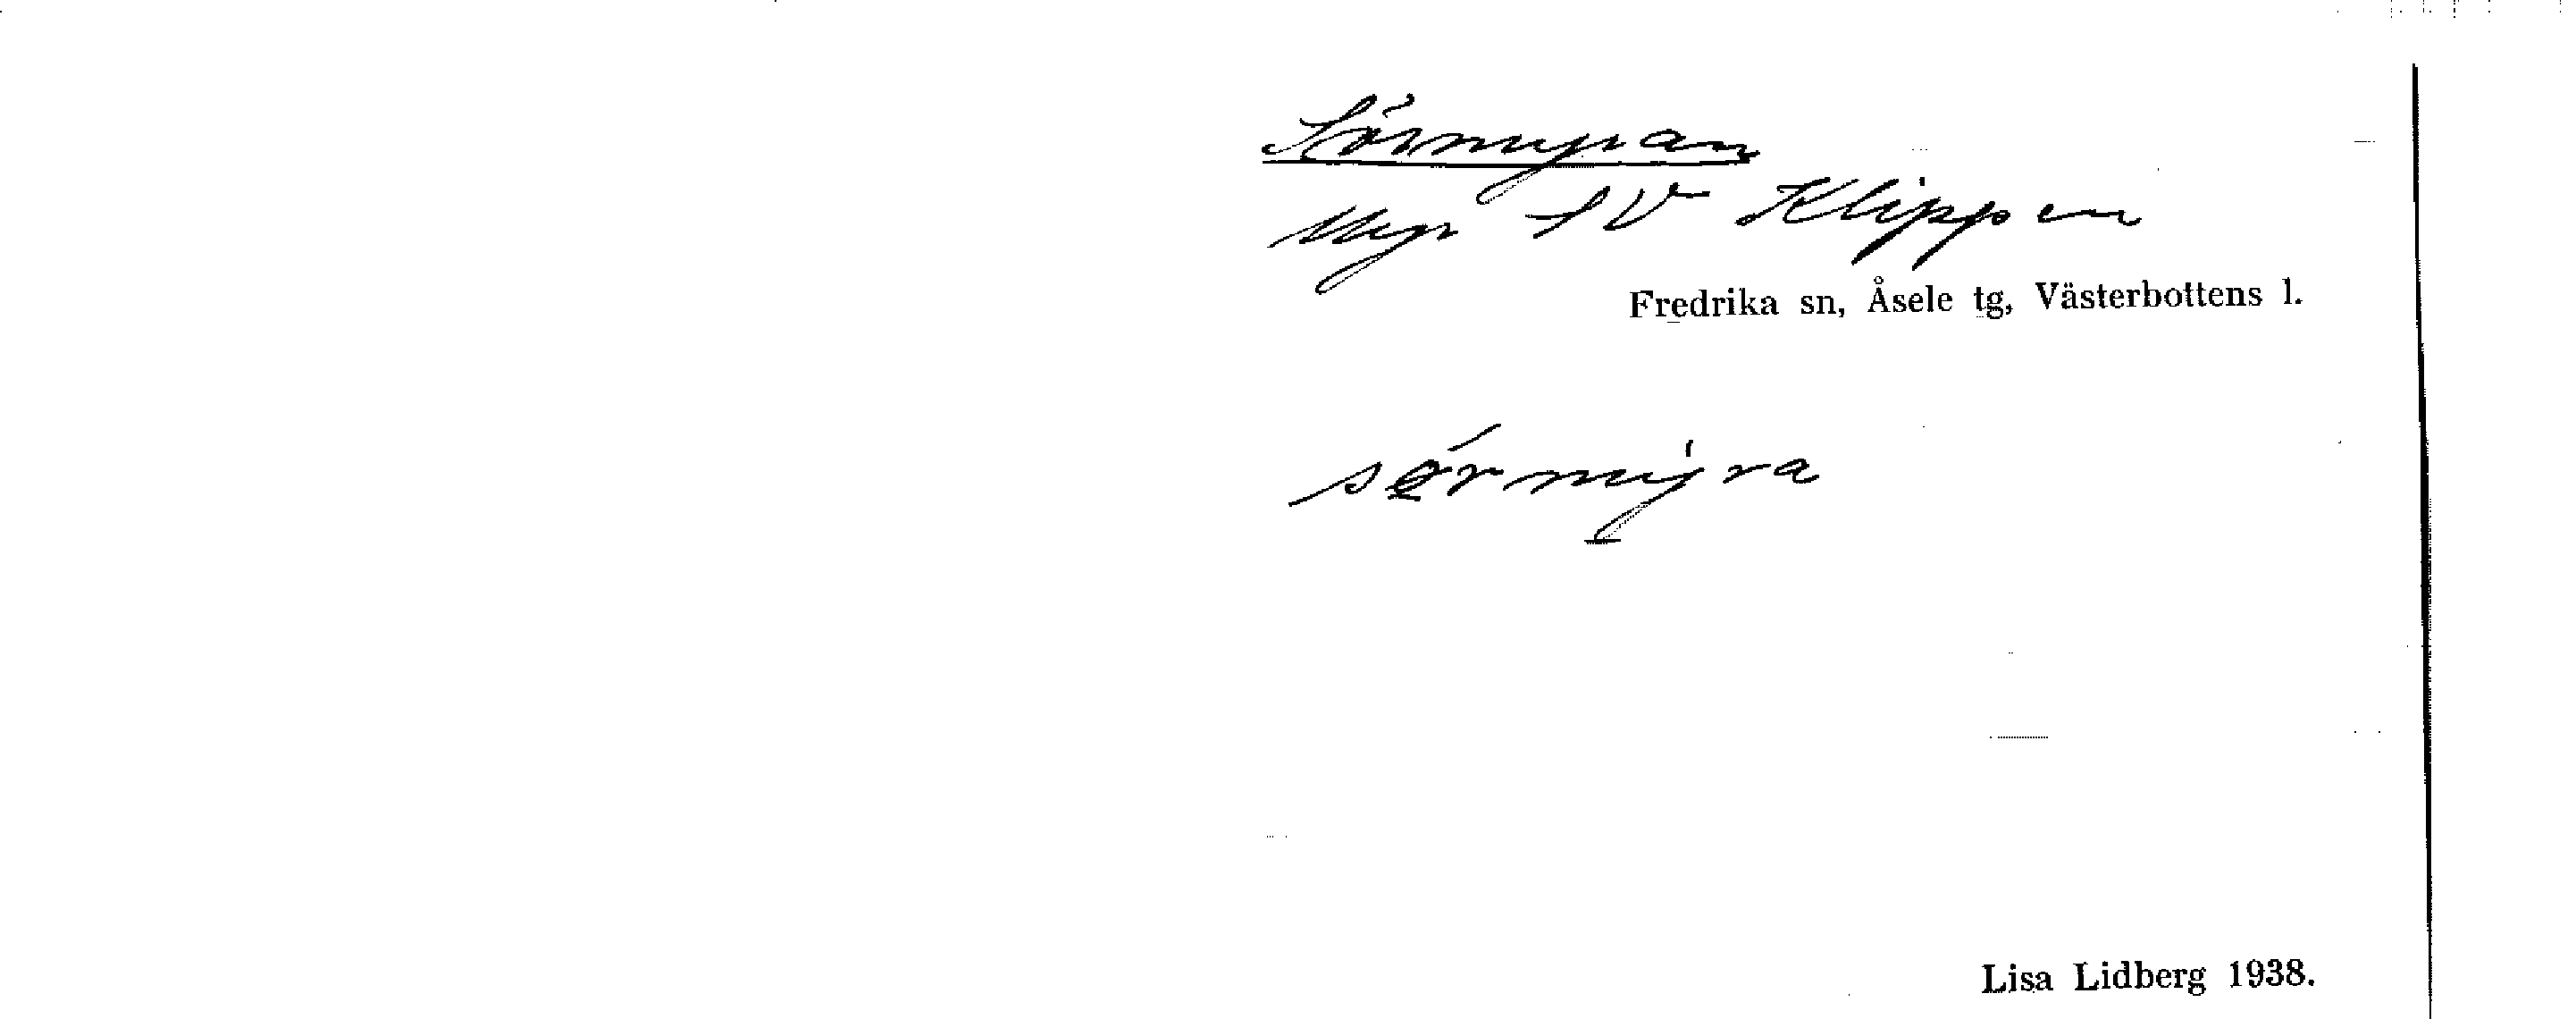 Sörmyran
Myr SV Klippen
Fredrika sn, Åsele tg, Västerbottens l.
sǿrmýra
Lisa Lidberg 1938.